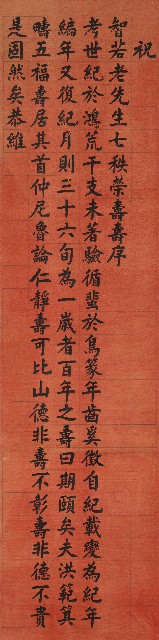 祝
智若老先生七秩榮壽壽序
考世紀於鴻荒干支未著驗循蜚於鳥篆年齒奚徵自紀載變為紀年
編年又復紀月則三十六旬為一歲者百年之壽曰期頤矣夫洪範箕
疇五福壽居其首仲尼魯論仁靜壽可比山德非壽不彰壽非德不貴
是固然矣恭維